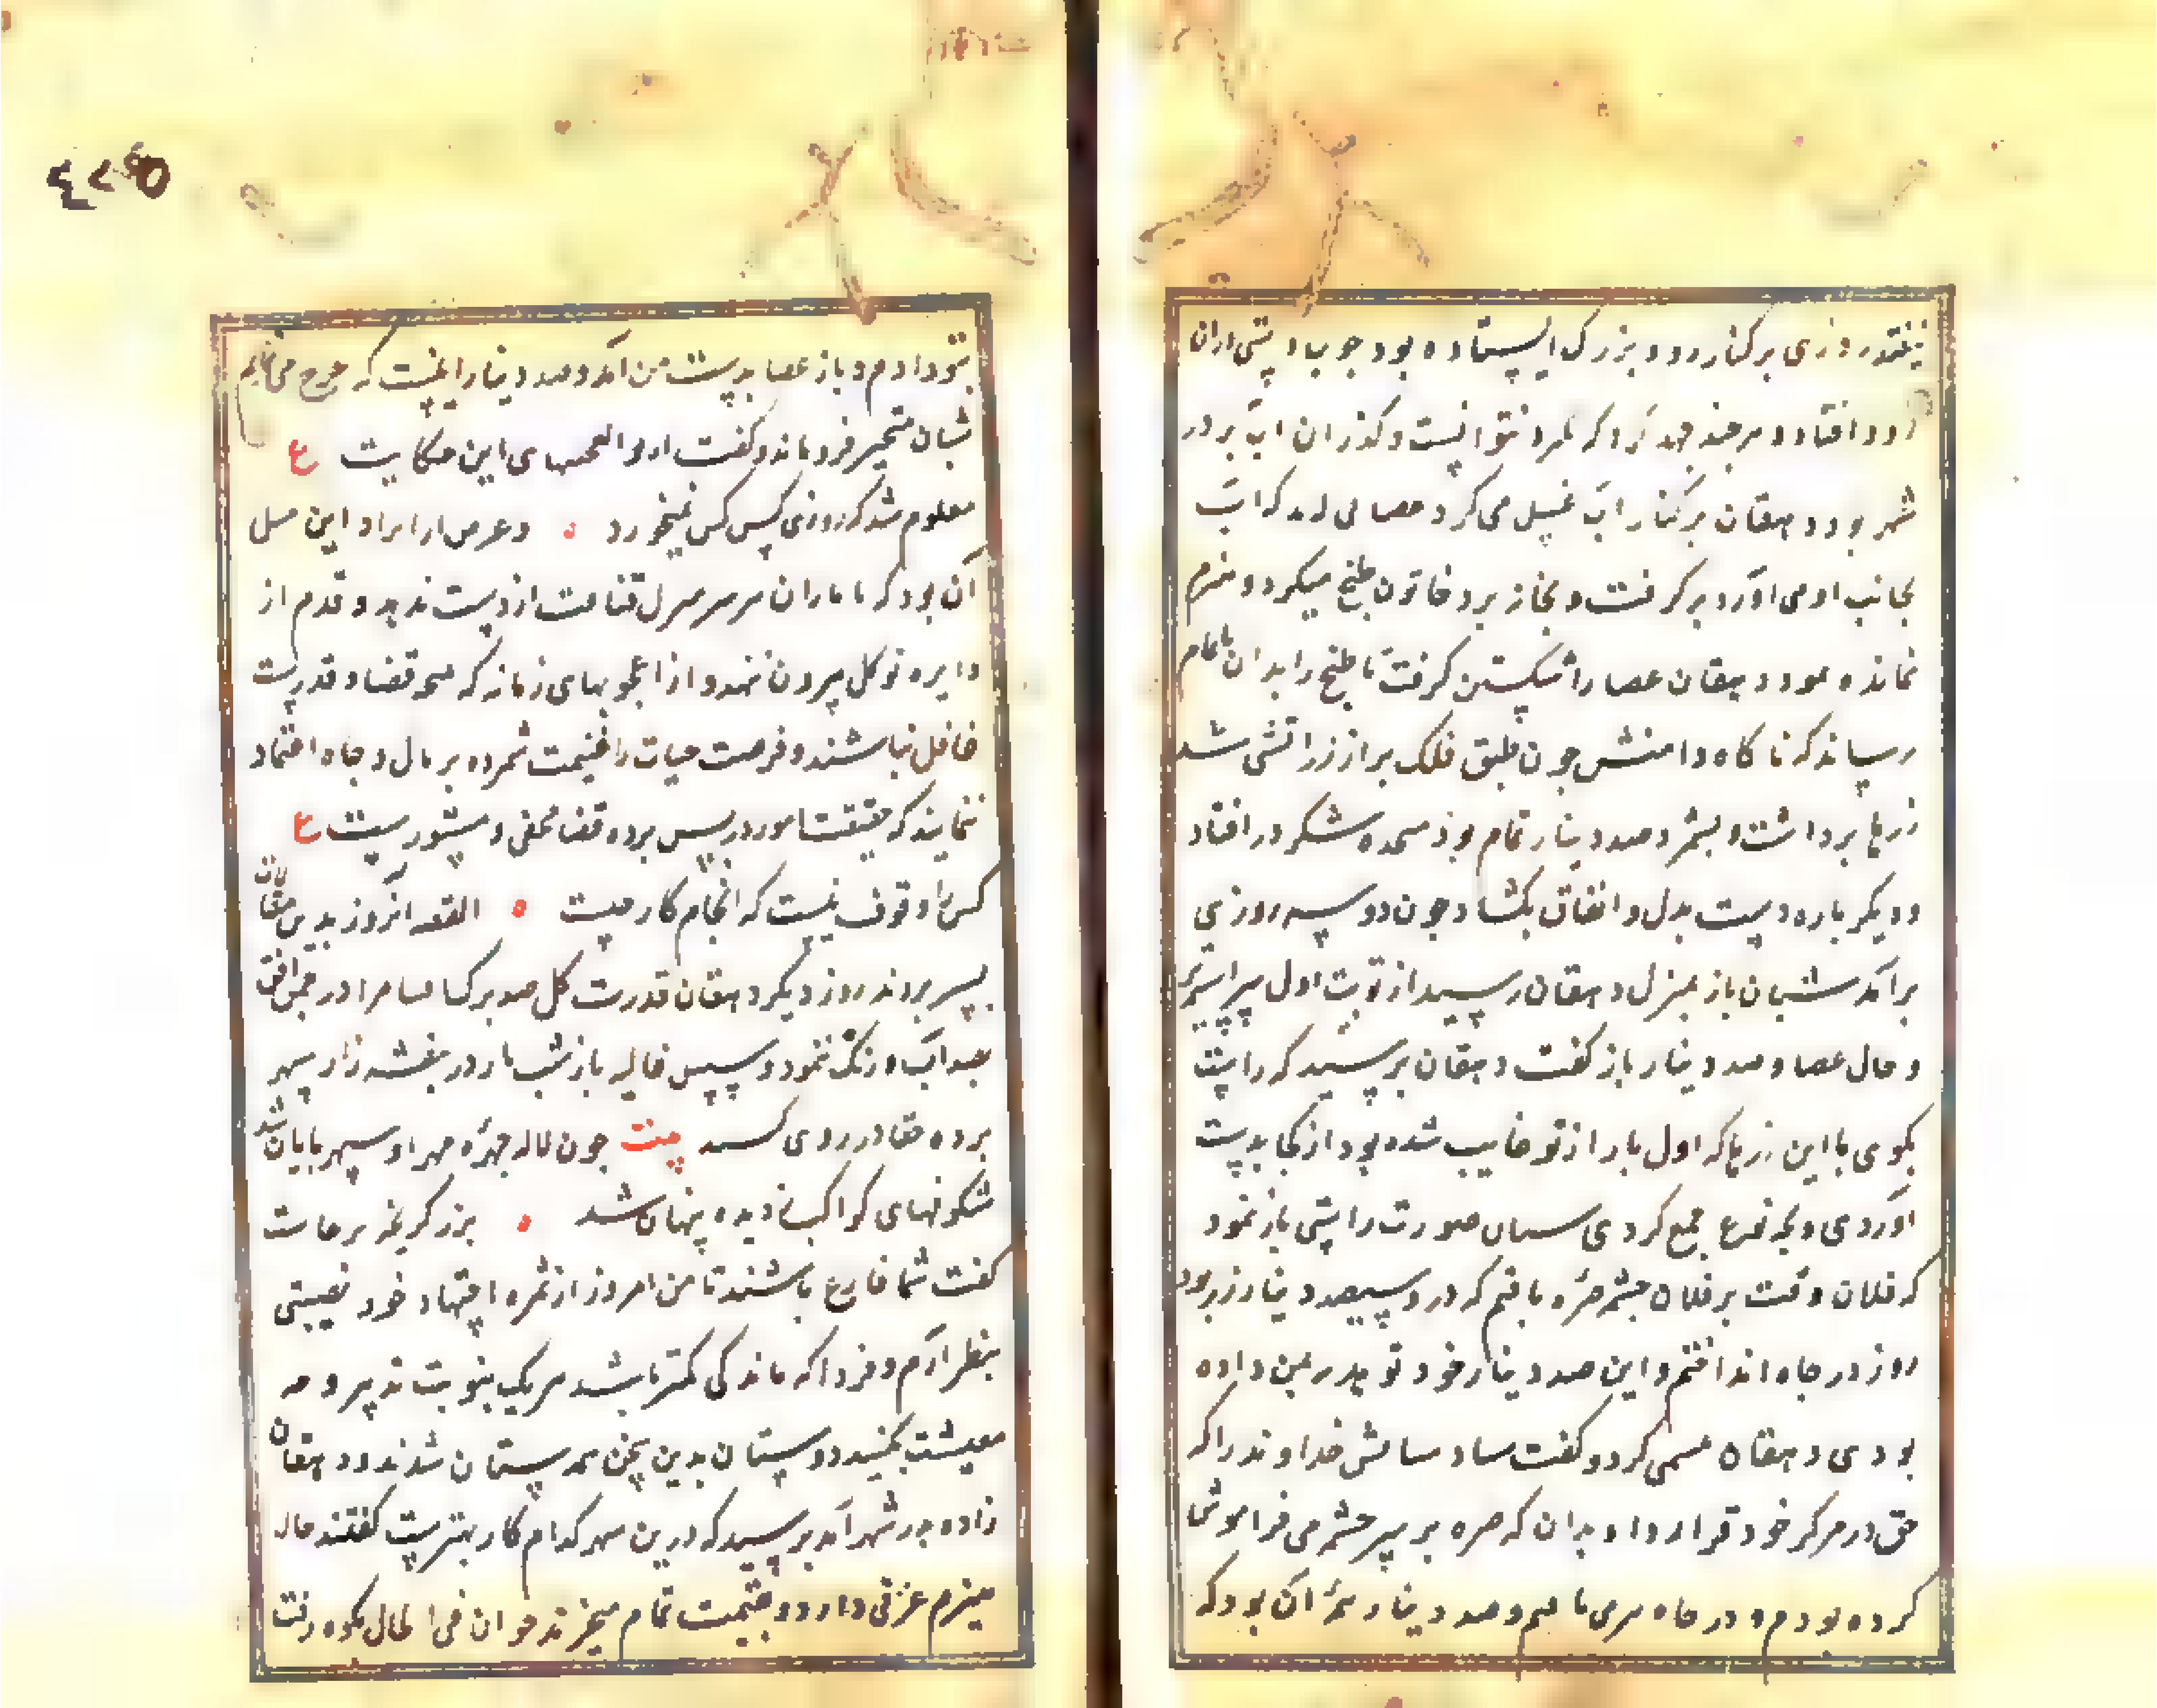 بیفتد روزی بر کنار رود بزرک ایستاده بود جوب دستی از ان
در رود افتاد و هرجند جهد کرد که بکیرد نتوانست و کذر ان اب بر در
شهر بود دهقان بر کنار اب غسل می کرد عصایی دید که اب
بجانب او می اورد بر کرفت و بخانه برد خاتون طبخ میکرد و هیزم
نمانده بود دهقان عصا را شکستن کرفت تا طبخ را بدان باتمام
رساند که ناکاه دامنش جون طبق فلک بر از زر اتشی شد
زرها برداشت و بشمرد صد دینار تمام بود سجده شکر در افتاد
و دیکر باره دست بذل و انفاق بکشاد جون دو سه روزی
برامد شبان باز بمنزل دهقان رسید از نوبت اول پریشانتر
و حال عصا و صد دینار باز کفت دهقان برسید که راست
بکوی با این زرها که اول بار از تو غایب شده بود از کجا بدست
اوردی و بجه نوع جمع کردی شبان صورت راستی باز نمود
که فلان وقت بر فلان جشمه صره یافتم که در و سیصد دینار زر بود
روز در جاه انداختم و این صد دینار خود تو بدر بمن داده
بودی دهقان تبسمی کرد و کفت سپاس و ستایش خداوند را که
حق در مرکز خود قرار داد بدان که صره بر سر جشمه می فراموش
کرده بودم و در جاه می یافتم و صد دینار همه ان بود که
بتو دادم و باز عصا بدست من امد و صد دینار اینست که خرج می نمایم
شبان متحیر فرو ماند و کفت از بوالعجبیهای این حکایت ع
معلوم شد که روزی کس کس نمیخورد ه و غرض از ایراد این مثل
آن بود که تا یاران سر منزل قناعت از دست ندهد و قدم از
دایره توکل بیرون ننهد و از اعجوبهای زمانه که نتیجه قضا و قدرست
غافل نباشند و فرصت حیات را غنیمت شمرده بر مال و جاه اعتماد
ننمایند که حقیقت امور در پس برده قضا مخفی و مستورست ع
کس را وقوف نیست که انجام کار جیست ه القصه انروز بدین مقالات
بسر بردند روز دیکر دهقان قدرت کل صد برک
باز شب تار در بنفشه زار سپهر
برده خفا در روی کشید بیت جون لاله جهره مهر او سپهر تابان شد
شکوفهای کواکب ز دیده پنهان شد ه برزکر بجه برخاست
کفت شما فارغ باشند تا من امروز از ثمره اجتهاد خود نصیبی
بنظر ارم و فردا که ماندکی کمتر باشد هر یک بنوبت تدبیر وجه
معیشت کنید دوستان بدین سخن همداستان شدند و دهقان
زاده بدر شهر امد برسید که درین شهر کدام کار بهترست کفتند حالا
هیزم عزتی دارد و بقیمت تمام میخرند جوان فی الحال بکوه رفت
٤٢٥